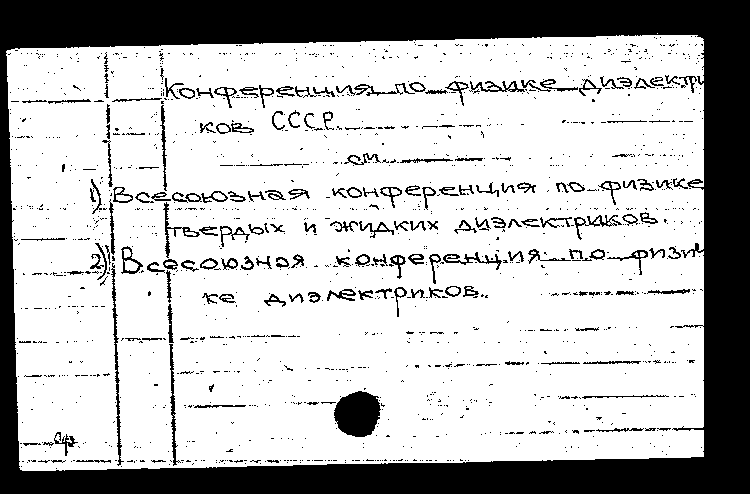 Конференция по физике диэлектри
ков СССР
см.
1) Всесоюзная конференция по физике
твердых и жидких диэлектриков.
2) Всесоюзная конференция по физи
ке диэлектриков.